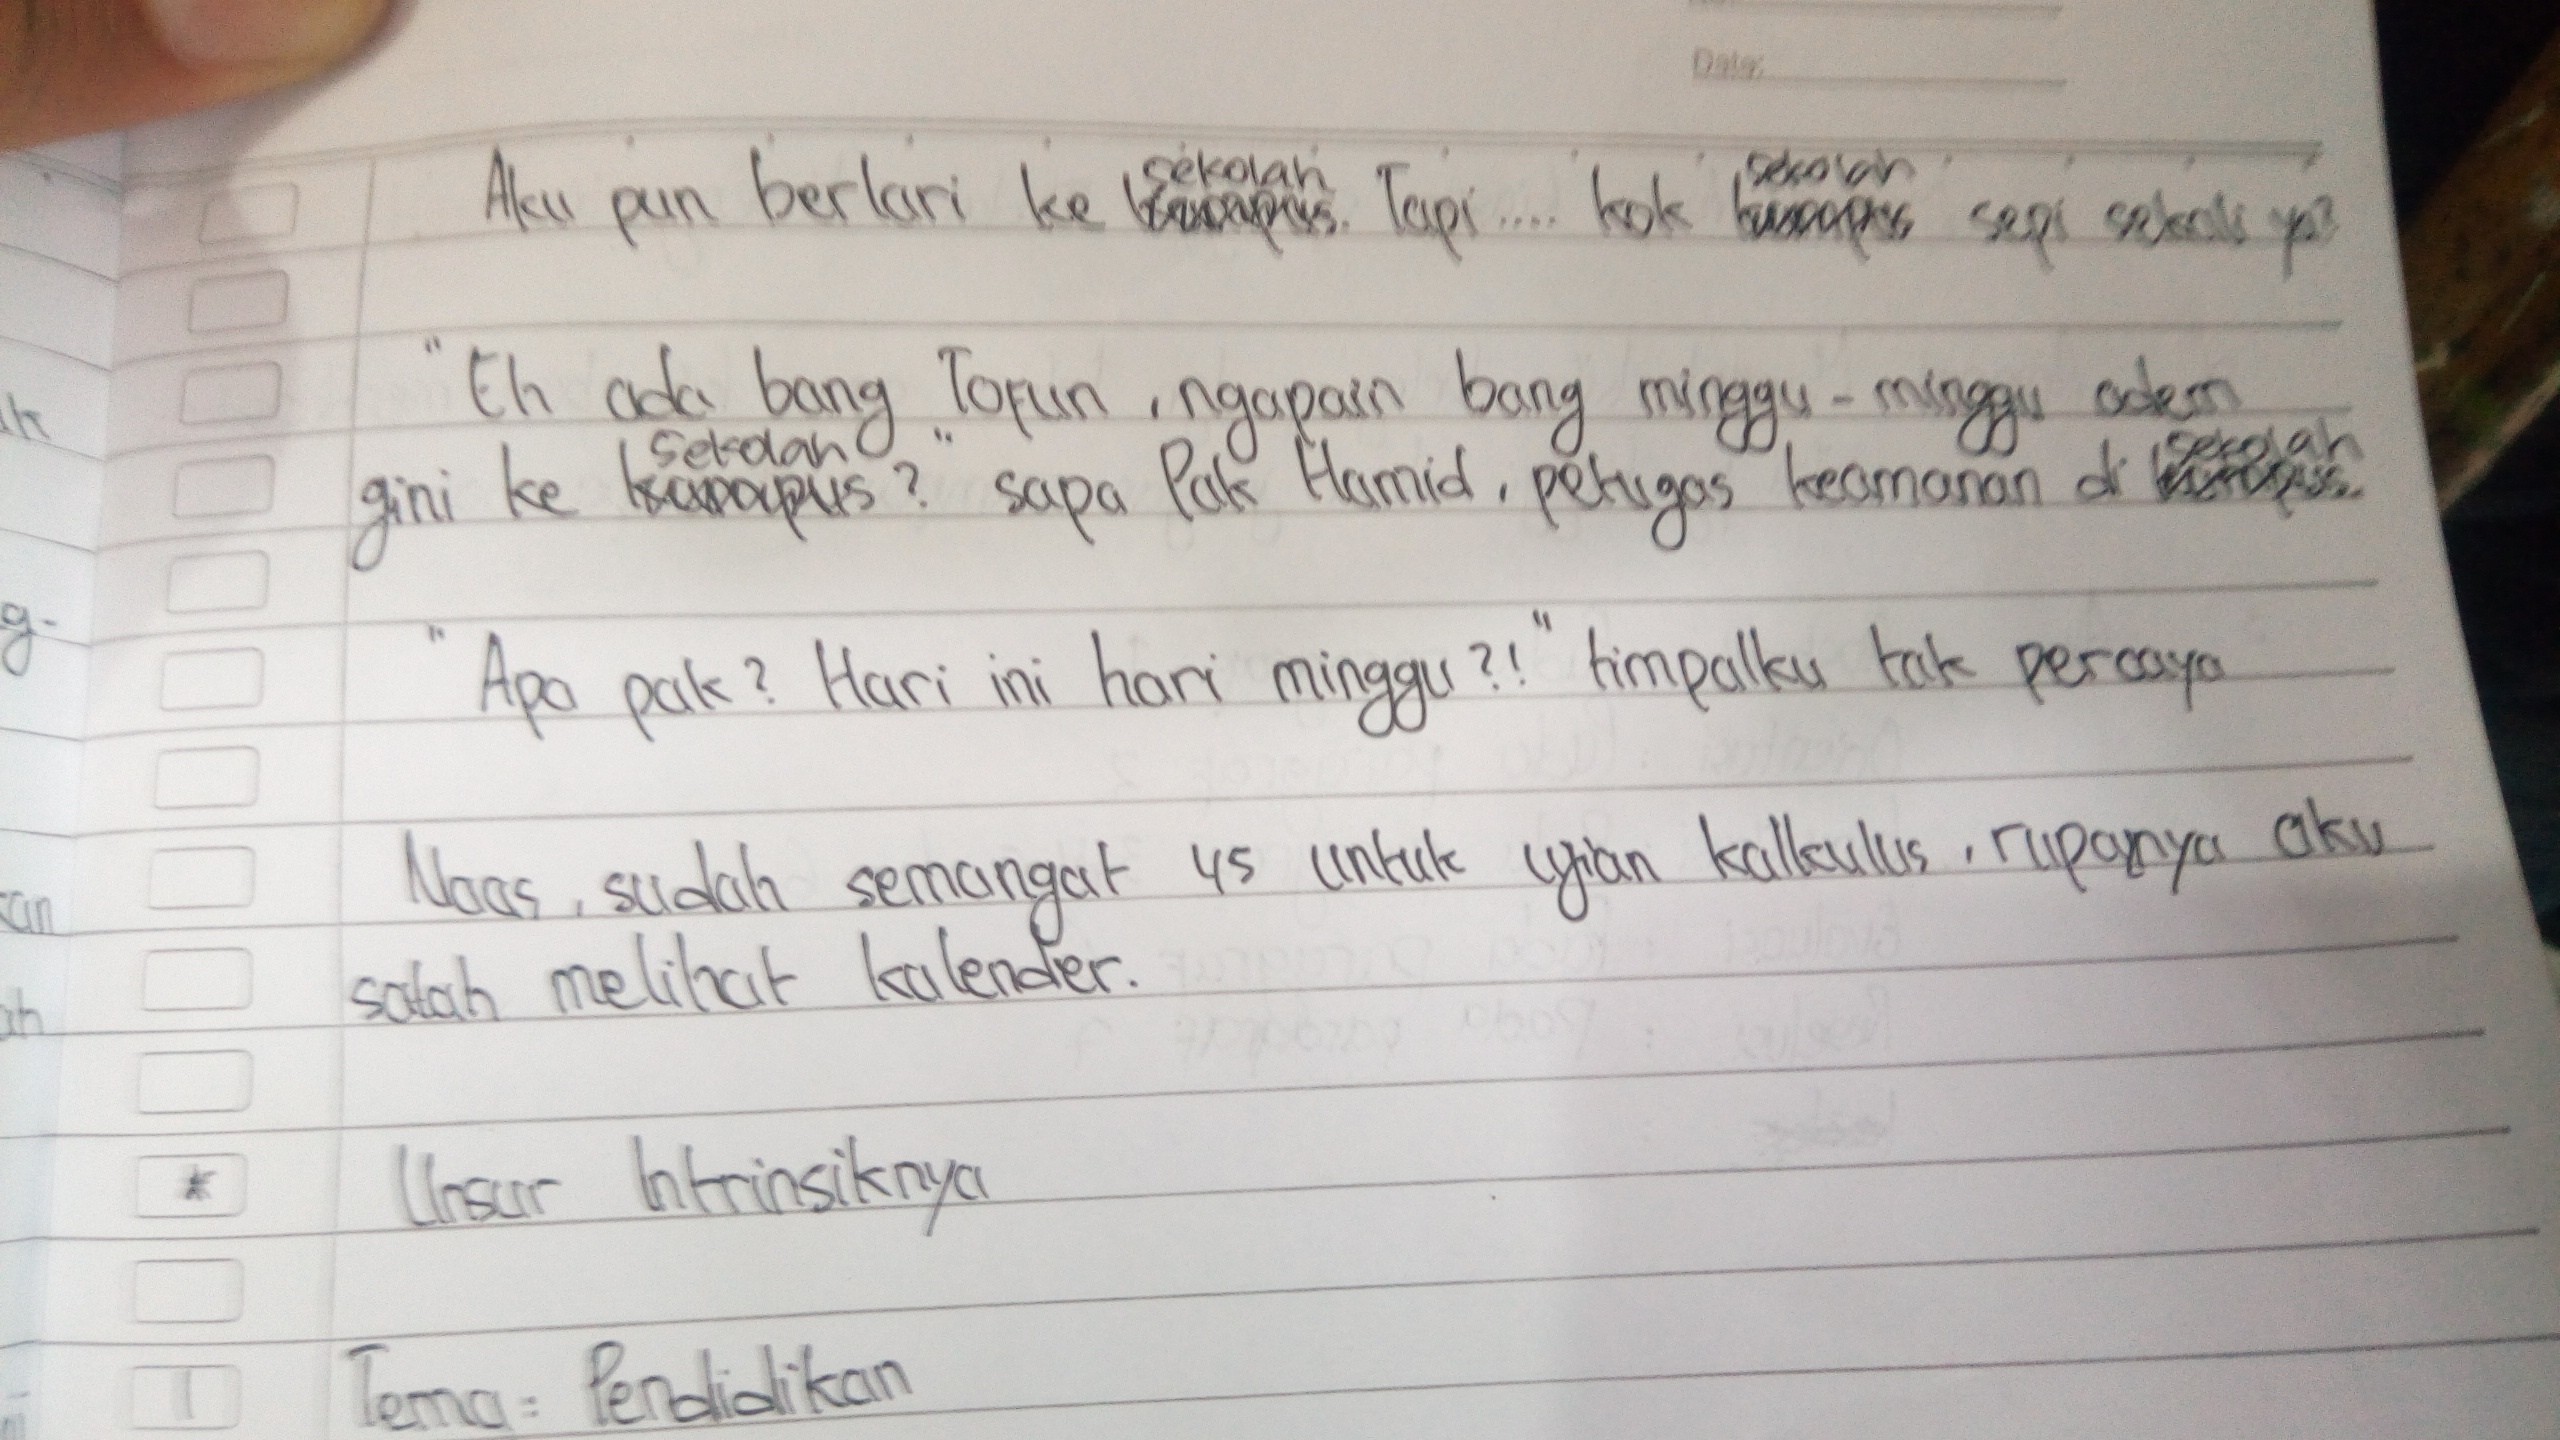 Date:
Aku pun berlari ke sekolah. Tapi .... kok sekolah sepi sekali ya?
"Eh ada bang Tofun, ngapain bang minggu-minggu adem
gini ke sekolah?" sapa Pak Hamid, petugas keamanan di sekolah.
"Apa pak? Hari ini hari minggu?!" timpalku tak percaya
Naas, sudah semangat 45 untuk ujian kalkulus, rupanya aku
salah melihat kalender.
* Unsur Intrinsiknya
1 Tema: Pendidikan